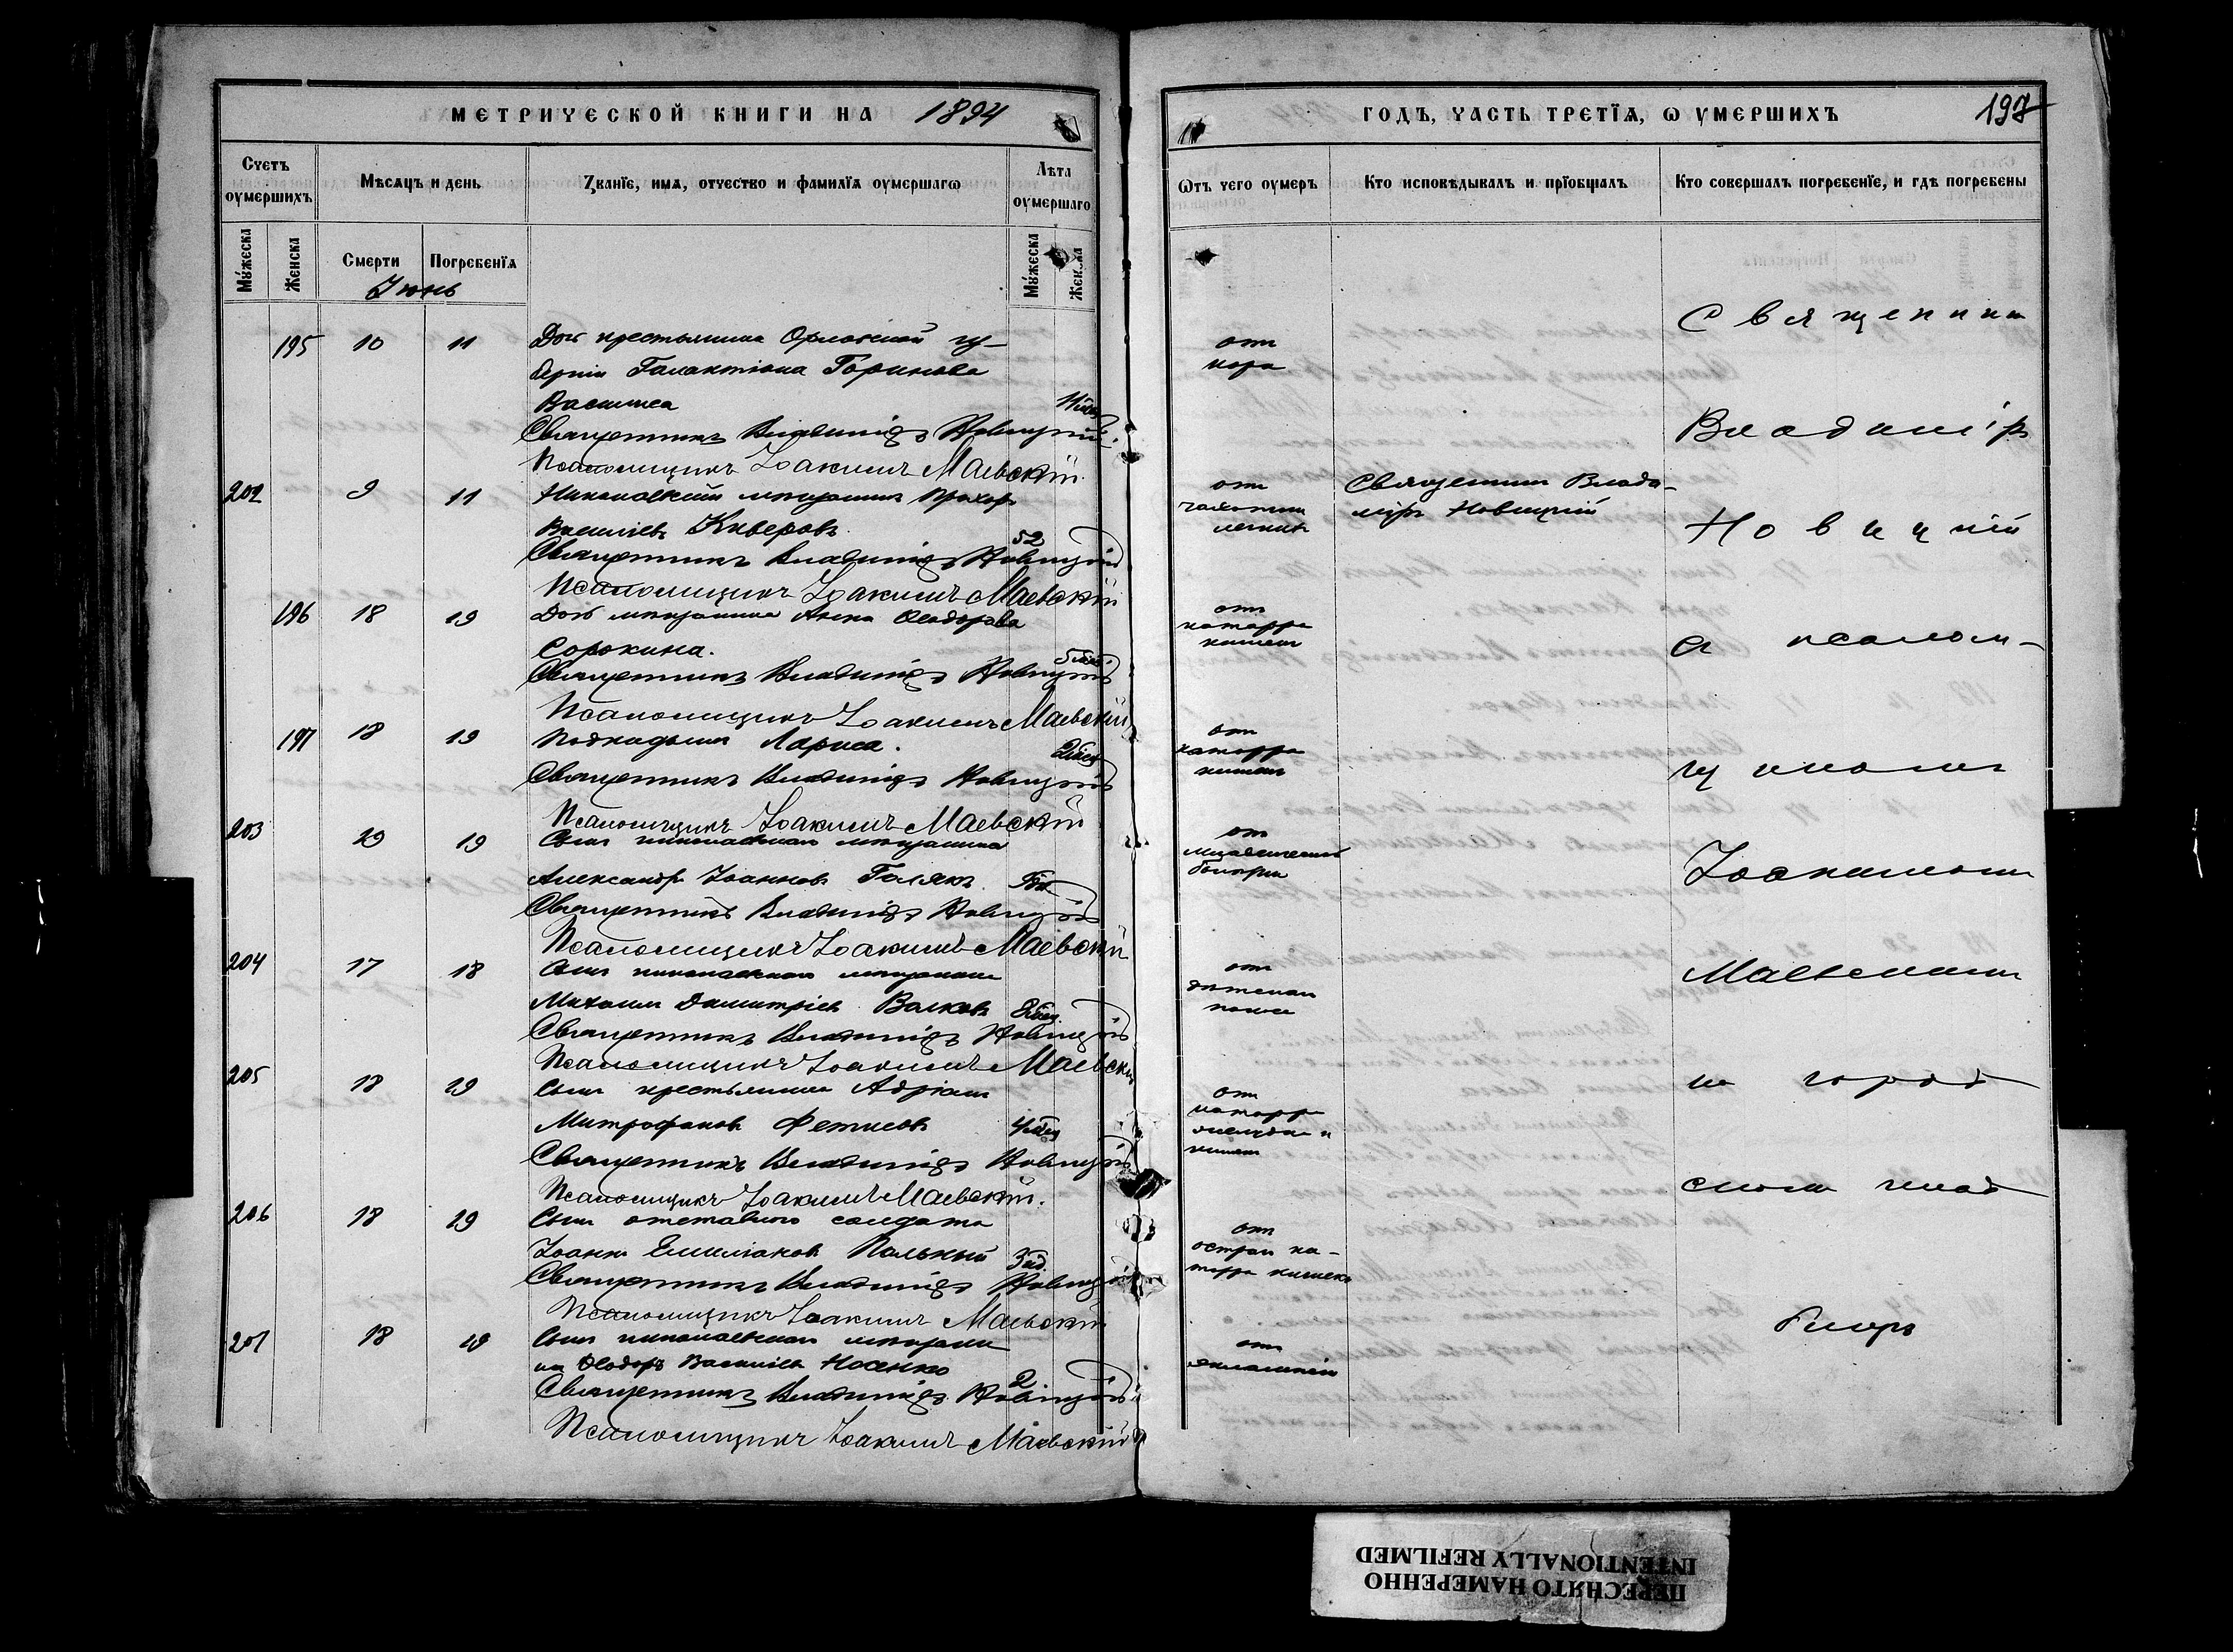 МЕТРИЧЕСКОЙ КНИГИ НА 1894
Счетъ оумершихъ
Мѣсяцъ и день
Званіе, имя, отчество и фамилія оумершагω
Лѣта оумершаго
Мужеска
Женска
Смерти
Погребенія
Мужеска
Женска
Іюнь
195 10 11 Дочь крестьянина Орловской гу-
берніи Галактіона Горинова
Василиса
Священникъ Владиміръ Новицкій.
Псаломщикъ Іоакимъ Маевскій.
202 9 11 Николаевскій мѣщанинъ Прохоръ
Василіевъ Киверовъ 52
Священникъ Владиміръ Новицкій
Псаломщикъ Іоакимъ Маевскій
196 18 19 Дочь мѣщанина Анна Ѳеодорова
Сорокина.
Священникъ Владиміръ Новицкій
Псаломщикъ Іоакимъ Маевскій
197 18 19 Подкидышъ Лариса.
Священникъ Владиміръ Новицкій
Псаломщикъ Іоакимъ Маевскій
203 19 Сынъ николаевскаго мѣщанина
Александръ Іоанновъ Голякъ
Священникъ Владиміръ Новицкій
Псаломщикъ Іоакимъ Маевскій
204 17 18 Сынъ николаевскаго мѣщанина
Михаилъ Димитріевъ Волковъ
Священникъ Владиміръ Новицкій
Псаломщикъ Іоакимъ Маевскій
205 18 19 Сынъ крестьянина Адріанъ
Митрофановъ Фетисовъ
Священникъ Владиміръ Новицкій
Псаломщикъ Іоакимъ Маевскій.
206 18 19 Сынъ отставного солдата
Іоаннъ Емиліановъ
Священникъ Владиміръ Новицкій
Псаломщикъ Іоакимъ Маевскій
207 18 19 Сынъ николаевскаго мѣщани-
на Ѳеодоръ Василіевъ Носенко 2
Священникъ Владиміръ Новицкій
Псаломщикъ Іоакимъ Маевскій
ГОДЪ, ЧАСТЬ ТРЕТІЯ, Ѡ УМЕРШИХЪ
Ѿтъ чего оумеръ
Кто исповѣдывалъ и пріобщалъ
Кто совершалъ погребеніе, и гдѣ погребены
отъ
кора
отъ
чахотки
легкихъ
Священникъ Влади-
міръ Новицкій
отъ
катарра
кишекъ
отъ
катарра
кишекъ
отъ
отъ
отъ
катарра
желудка и
кишекъ
отъ
остраго ка-
тарра кишекъ
отъ
Священникъ
Владиміръ
Новицкій
съ псалом-
щикомъ
Іоакимомъ
Маевскимъ
на город
скомъ клад
бищѣ
ПЕРЕСНЯТО НАМЕРЕННО
INTENTIONALLY REFILMED